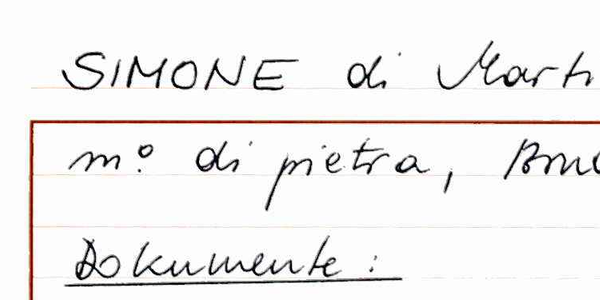 SIMONE di
m.º di pietra,
Dokumente: